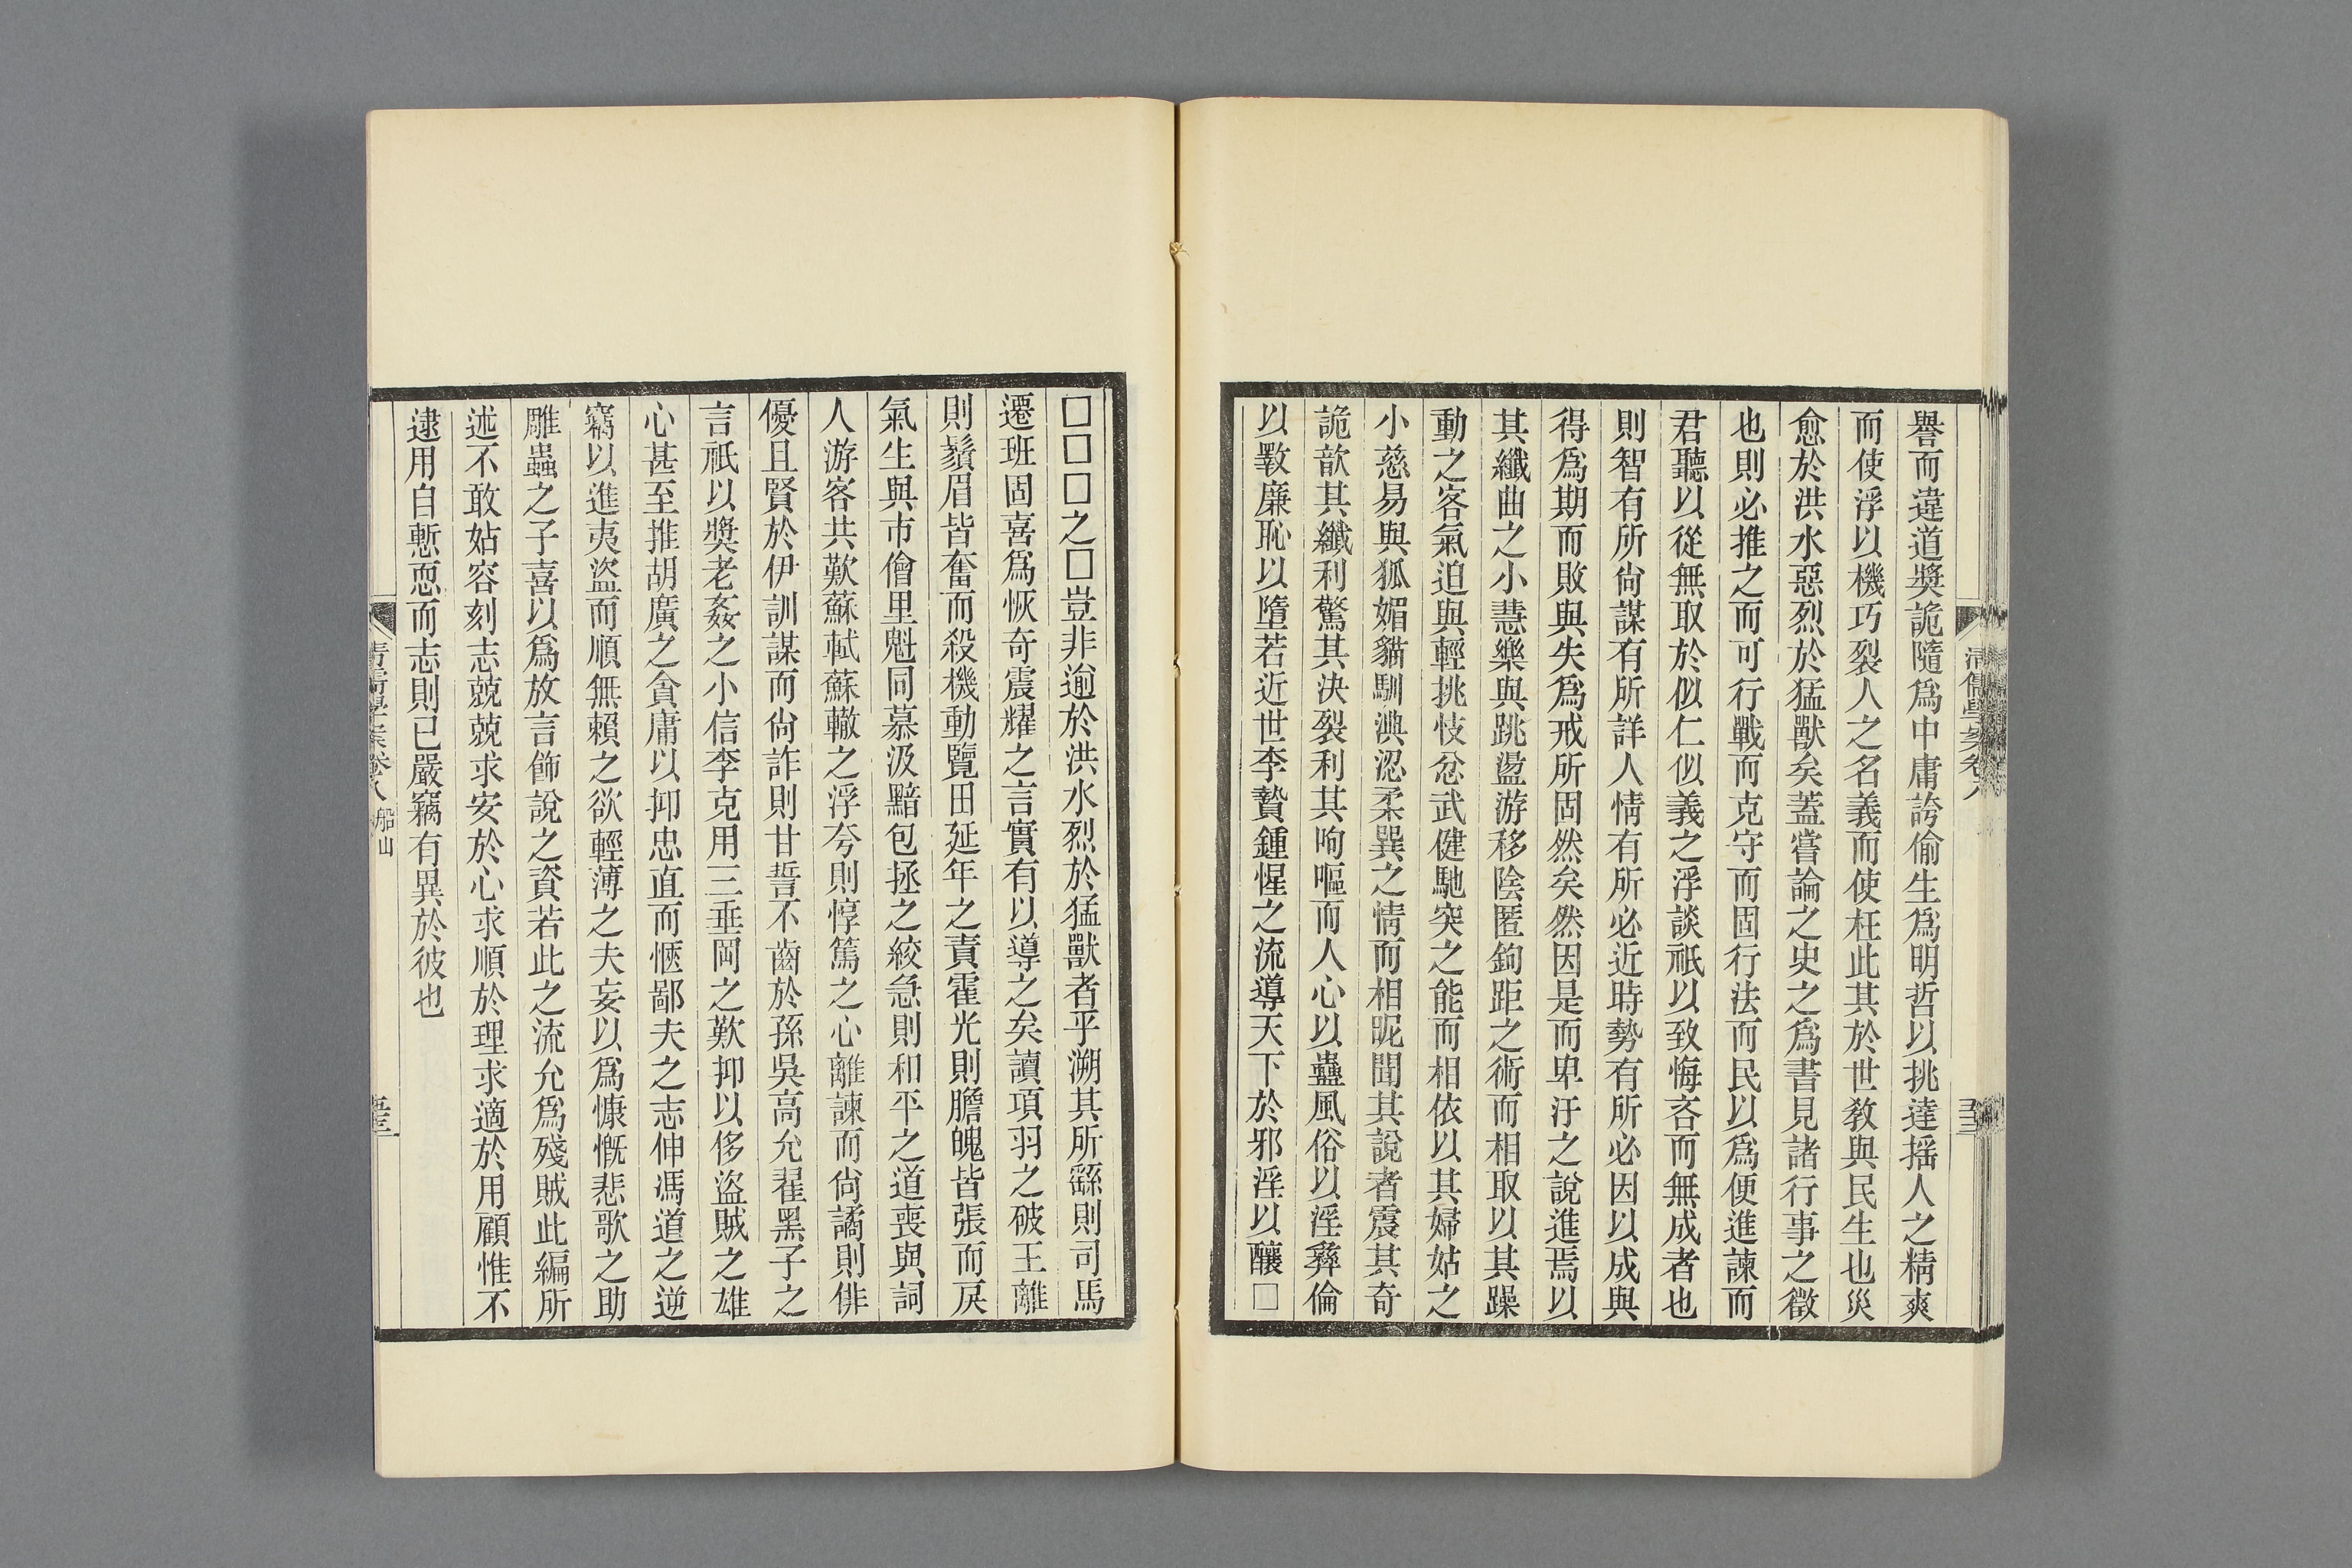 譽而違道獎詭隨爲中庸誇偷生爲明哲以挑達搖人之精爽
而使浮以機巧裂人之名義而使枉此其於世敎與民生也災
愈於洪水惡烈於猛獸矣蓋嘗論之史之爲書見諸行事之徵
也則必推之而可行戰而克守而固行法而民以爲便進諫而
君聽以從無取於似仁似義之浮談祇以致悔吝而無成者也
則智有所尙謀有所詳人情有所必近時勢有所必因以成與
得爲期而敗與失爲戒所固然矣然因是而卑汙之說進焉以
其纖曲之小慧樂與跳盪游移陰匿鉤距之術而相取以其躁
動之客氣迫與輕挑忮忿武健馳突之能而相依以其婦姑之
小慈易與狐媚貓馴淟涊柔巽之情而相昵聞其說者震其奇
詭歆其纖利驚其決裂利其呴嘔而人心以蠱風俗以淫彝倫
以斁廉恥以墮若近世李贄鍾惺之流導天下於邪淫以釀□
□□□之□豈非逾於洪水烈於猛獸者乎溯其所繇則司馬
遷班固喜爲恢奇震耀之言實有以導之矣讀項羽之破王離
則鬚眉皆奮而殺機動覽田延年之責霍光則膽魄皆張而戾
氣生與市儈里魁同慕汲黯包拯之絞急則和平之道喪與詞
人游客共歎蘇軾蘇轍之浮夸則惇篤之心離諫而尙譎則俳
優且賢於伊訓謀而尙詐則甘誓不齒於孫吳高允翟黑子之
言祇以獎老姦之小信李克用三垂岡之歎抑以侈盜賊之雄
心甚至推胡廣之貪庸以抑忠直而愜鄙夫之志伸馮道之逆
竊以進夷盜而順無賴之欲輕薄之夫妄以爲慷慨悲歌之助
雕蟲之子喜以爲放言飾說之資若此之流允爲殘賊此編所
述不敢姑容刻志兢兢求安於心求順於理求適於用顧惟不
逮用自慙恧而志則已嚴竊有異於彼也
清儒學案卷八 船山